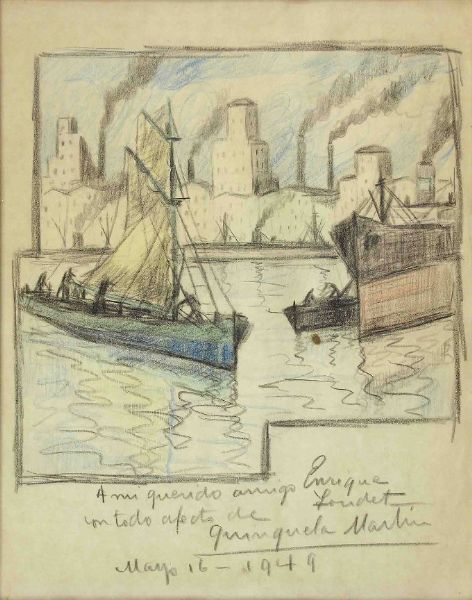 A mi querido amigo Enrique
Loudet
con todo afecto de
Quinquela Martín
Mayo 16 - 1949